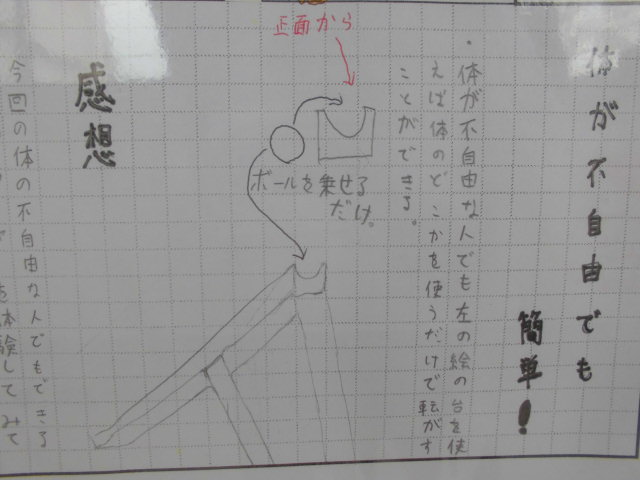 体が不自由でも
簡単!
・体が不自由な人でも左の絵の台を使
えば体のどこかを使うだけで転がす
ことができる。
正面から
ボールを乗せる
だけ。
感想
今回の体の不自由な人でもできる
を体験してみて